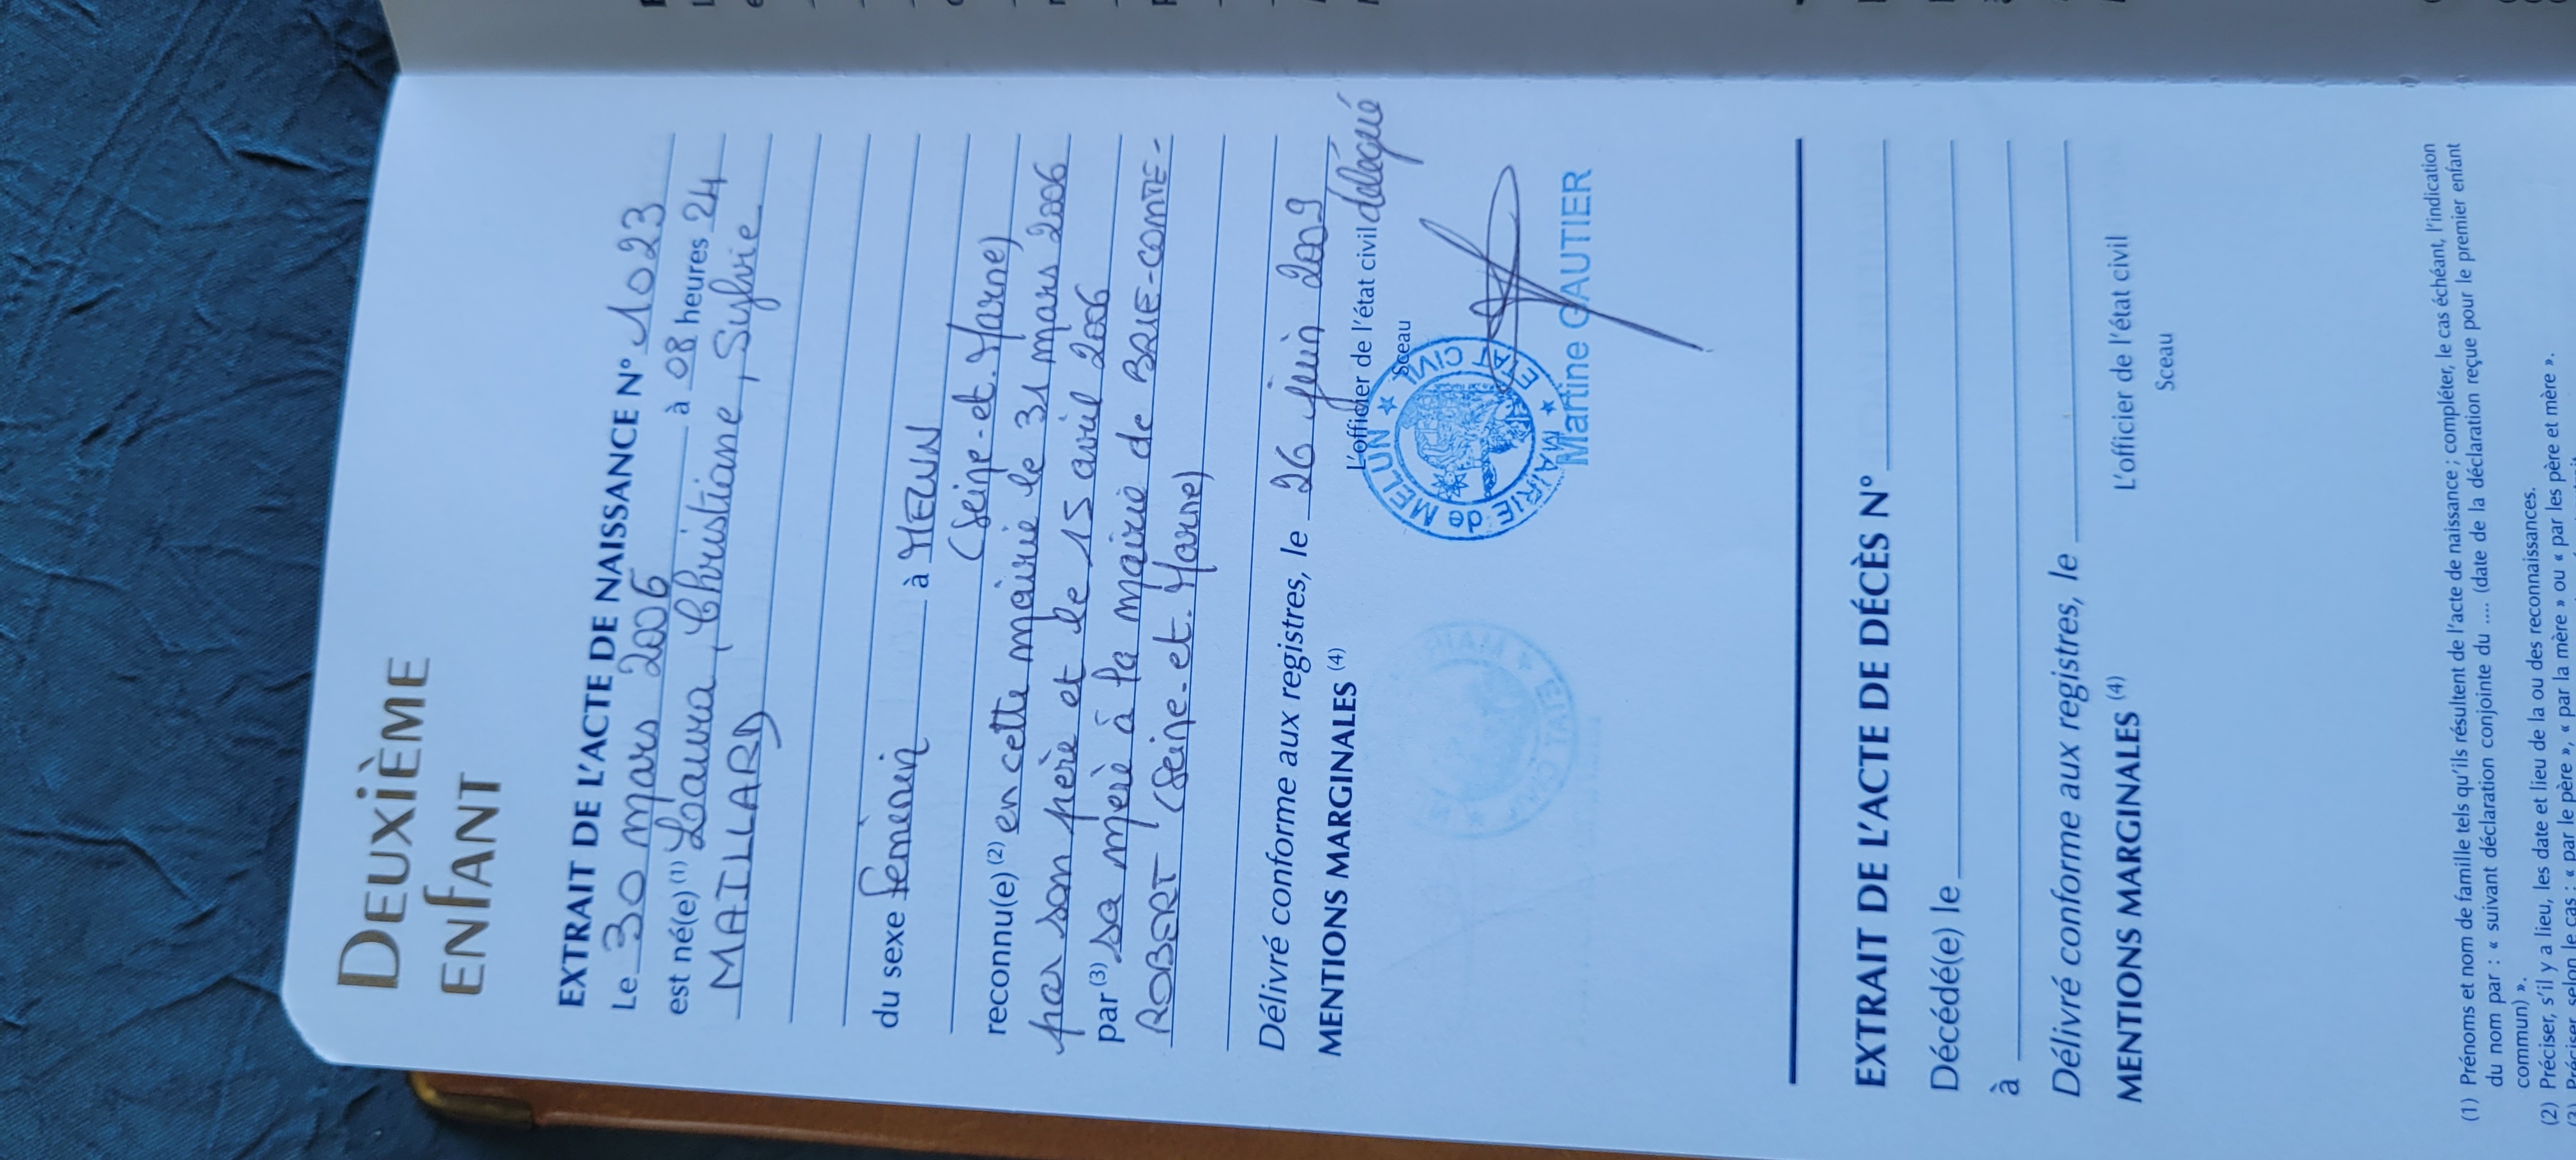 DEUXIÈME
ENFANT
EXTRAIT DE L'ACTE DE NAISSANCE N° 1023
Le 30 mars 2006 à 08 heures 24
est né(e) (1) Laura, Christiane, Sylvie
MAILLARD
du sexe féminin à MELUN
(Seine-et-Marne)
reconnu(e) (2) en cette mairie le 31 mars 2006
par son père et le 15 avril 2006
par (3) sa mère à la mairie de BRIE-COMTE-
ROBERT (Seine-et-Marne)
Délivré conforme aux registres, le 26 juin 2009
MENTIONS MARGINALES (4)
L'officier de l'état civil délégué
Sceau
MAIRIE de MELUN ★ ETAT CIVIL ★
Martine GAUTIER
EXTRAIT DE L'ACTE DE DÉCÈS N°
Décédé(e) le
à
Délivré conforme aux registres, le
MENTIONS MARGINALES (4)
L'officier de l'état civil
Sceau
(1) Prénoms et nom de famille tels qu'ils résultent de l'acte de naissance ; compléter, le cas échéant, l'indication
du nom par : « suivant déclaration conjointe du .... (date de la déclaration reçue pour le premier enfant
commun) ».
(2) Préciser, s'il y a lieu, les date et lieu de la ou des reconnaissances.
(3) Préciser selon le cas : « par le père », « par la mère » ou « par les père et mère ».